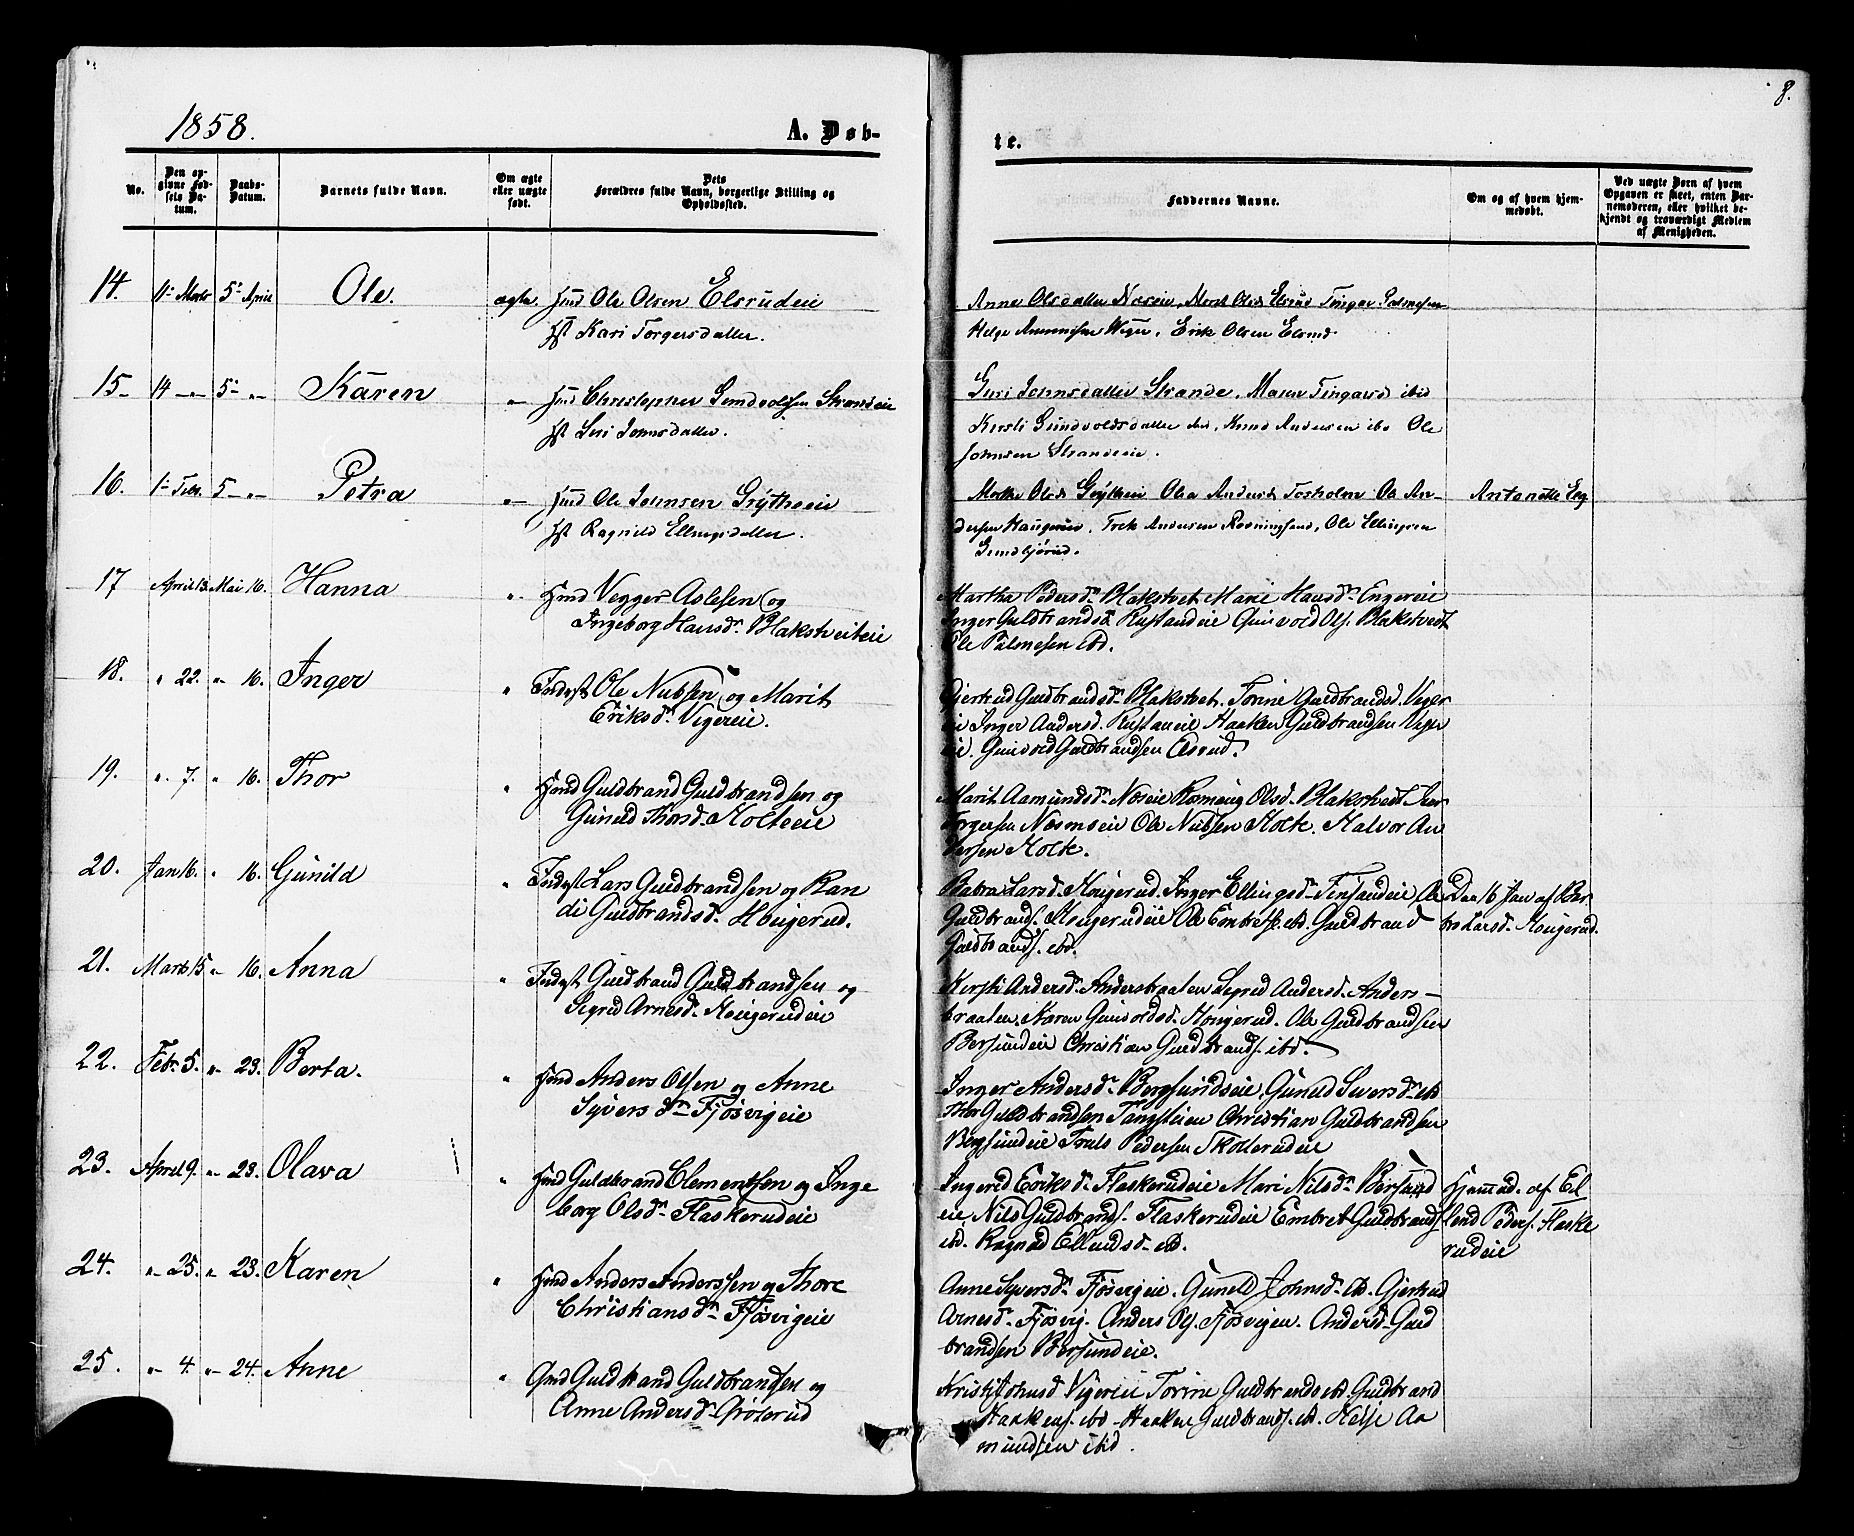 8.
1858.
A. Døb-
te.
No.
Den op-
givne Fød-
sels Da-
tum.
Daabs-
Datum.
Barnets fulde Navn.
Om ægte
eller uægte
født.
Dets
Forældres fulde Navn, borgerlige Stilling og
Opholdssted.
Faddernes Navne.
Om og af hvem hjem-
medøbt.
Ved uægte Børn af hvem
Opgaven er skeet, enten Bar-
nemoderen, eller hvilket be-
kjendt og troværdigt Medlem
af Menigheden.
14. 11 Marts 5 April Ole. ægte. Hmd Ole Olsen Elsrudeie
Kari Torgersdatter.
Anne Olsdatter Noseie, Marit Olsd Elsrud
Helge Amundsen Viger, Erik Olsen Elsrud
15 14 -„- 5 „- Karen Hmd Christopher Gundvoldsen Strandeie
Siri Johnsdatter.
Guri Johnsdatter Strande, Maren ibid
Kersti Gundvoldsdatter ibd, Knud Andersen ibd Ole
Johnsen Strandeie.
16. 1 Febr. 5 -„- Petra Hmd Ole Johnsen Grÿtheeie
Ragnild Ellingsdatter.
Marthe Olsd Grÿtheeie Olea Andersd Ole An-
dersen Haugerud, Andersen Ole Ellingsen
Antonette
17 April 13. Mai 16. Hanna „ Hmd Vegger Aslesen og
Ingeborg Hansdr. Blakstveiteie
Martha Pedersdr. Blakstvet Marie Hansdr. Engereie
Inger Guldbrandsd. Rustandeie Gunvold Ols. Blakstvedt
Ole Palmesen ibd.
18. „ 22. „ 16. Inger „ Inderst Ole Nubsen og Marit
Eriksdr. Vigereie.
Gjertrud Guldbrandsd. Blakstvet. Torine Guldbrandsd. Viger
eie Inger Andersd. Rustaneie Haaken Guldbrandsen Viger
eie. Gunvold Guldbrandsen Elsrud.
19. „ 7. „ 16. Thor „ Hmd Guldbrand Guldbrandsen og
Gunild Thorsd. Holteeie
Marit Aamundsd. Noseie Romaug Olsd. Blakstvedt Iver
Torgersen Ole Nubsen Holte. Halvor An
dersen Holte.
20. Jan 16. „ 16. Gunild „ Inderst Lars Guldbrandsen og Ran
di Guldbrandsd. Hougerud.
Larsd. Hougerud. Inger Ellingsd. Finsandeie Ole
Guldbrands. Hougerudeie Ole Embrets. ibd. Guldbrand
Guldbrands. ibd.
Daa 16 Jan af Ber
Larsd. Hougerud.
21. Marts 15 „ 16. Anna „ Inderst Guldbrand Guldbrandsen og
Sigrid Arnesd. Hougerudeie
Kersti Andersd. Anderbraaten Sigrid Andersd. Ander-
braaten. Karen Gunvoldsd. Hougerud. Ole Guldbrandsen
Bersundeie Christian Guldbrands. ibd.
22. Febr. 5. „ 23. Berta. „ Hmd Anders Olsen og Anne
Syversdr. Fjøsvigeie
Inger Andersdr. Bergsundseie. Gunild Siversdr. ibd
Thor Guldbrandsen Christian Guldbrandsen
Bergsundeie Truls Pedersen Skollerudeie
23. April 9. „ 23. Olava „ Hmd Guldbrand Clementsen og Inge
borg Olsdr. Flaskerudeie
Ingerid Eriksdr. Flaskerudeie Mari Nilsdr. Bersund
eie, Nils Guldbrands. Flaskerudeie Embret Guldbrands.
ibd. Ragnild Ellendsd. ibd.
Hjemmed. af El
lend Peders. Flaske
rudeie
24. „ 25. „ 23. Karen „ Hmd Anders Anderssen og Thore
Christiansdr. Fjøsvigeie
Anne Syversdr. Fjøsvigeie. Gunild Johnsd. ibd. Gjertrud
Arnesd. Fjøsvig. Anders Ols. Fjøsvigen. Guld
brandsen Bersundeie.
25. „ 4. „ 24. Anne „ Gmd Guldbrand Guldbrandsen og
Anne Andersdr.
Kristi Johnsd Vigereie Torine Guldbrandsd. ibd. Guldbrand
Haakens. ibd. Haaken Guldbrands. ibd. Helje Aa
mundsen ibid.